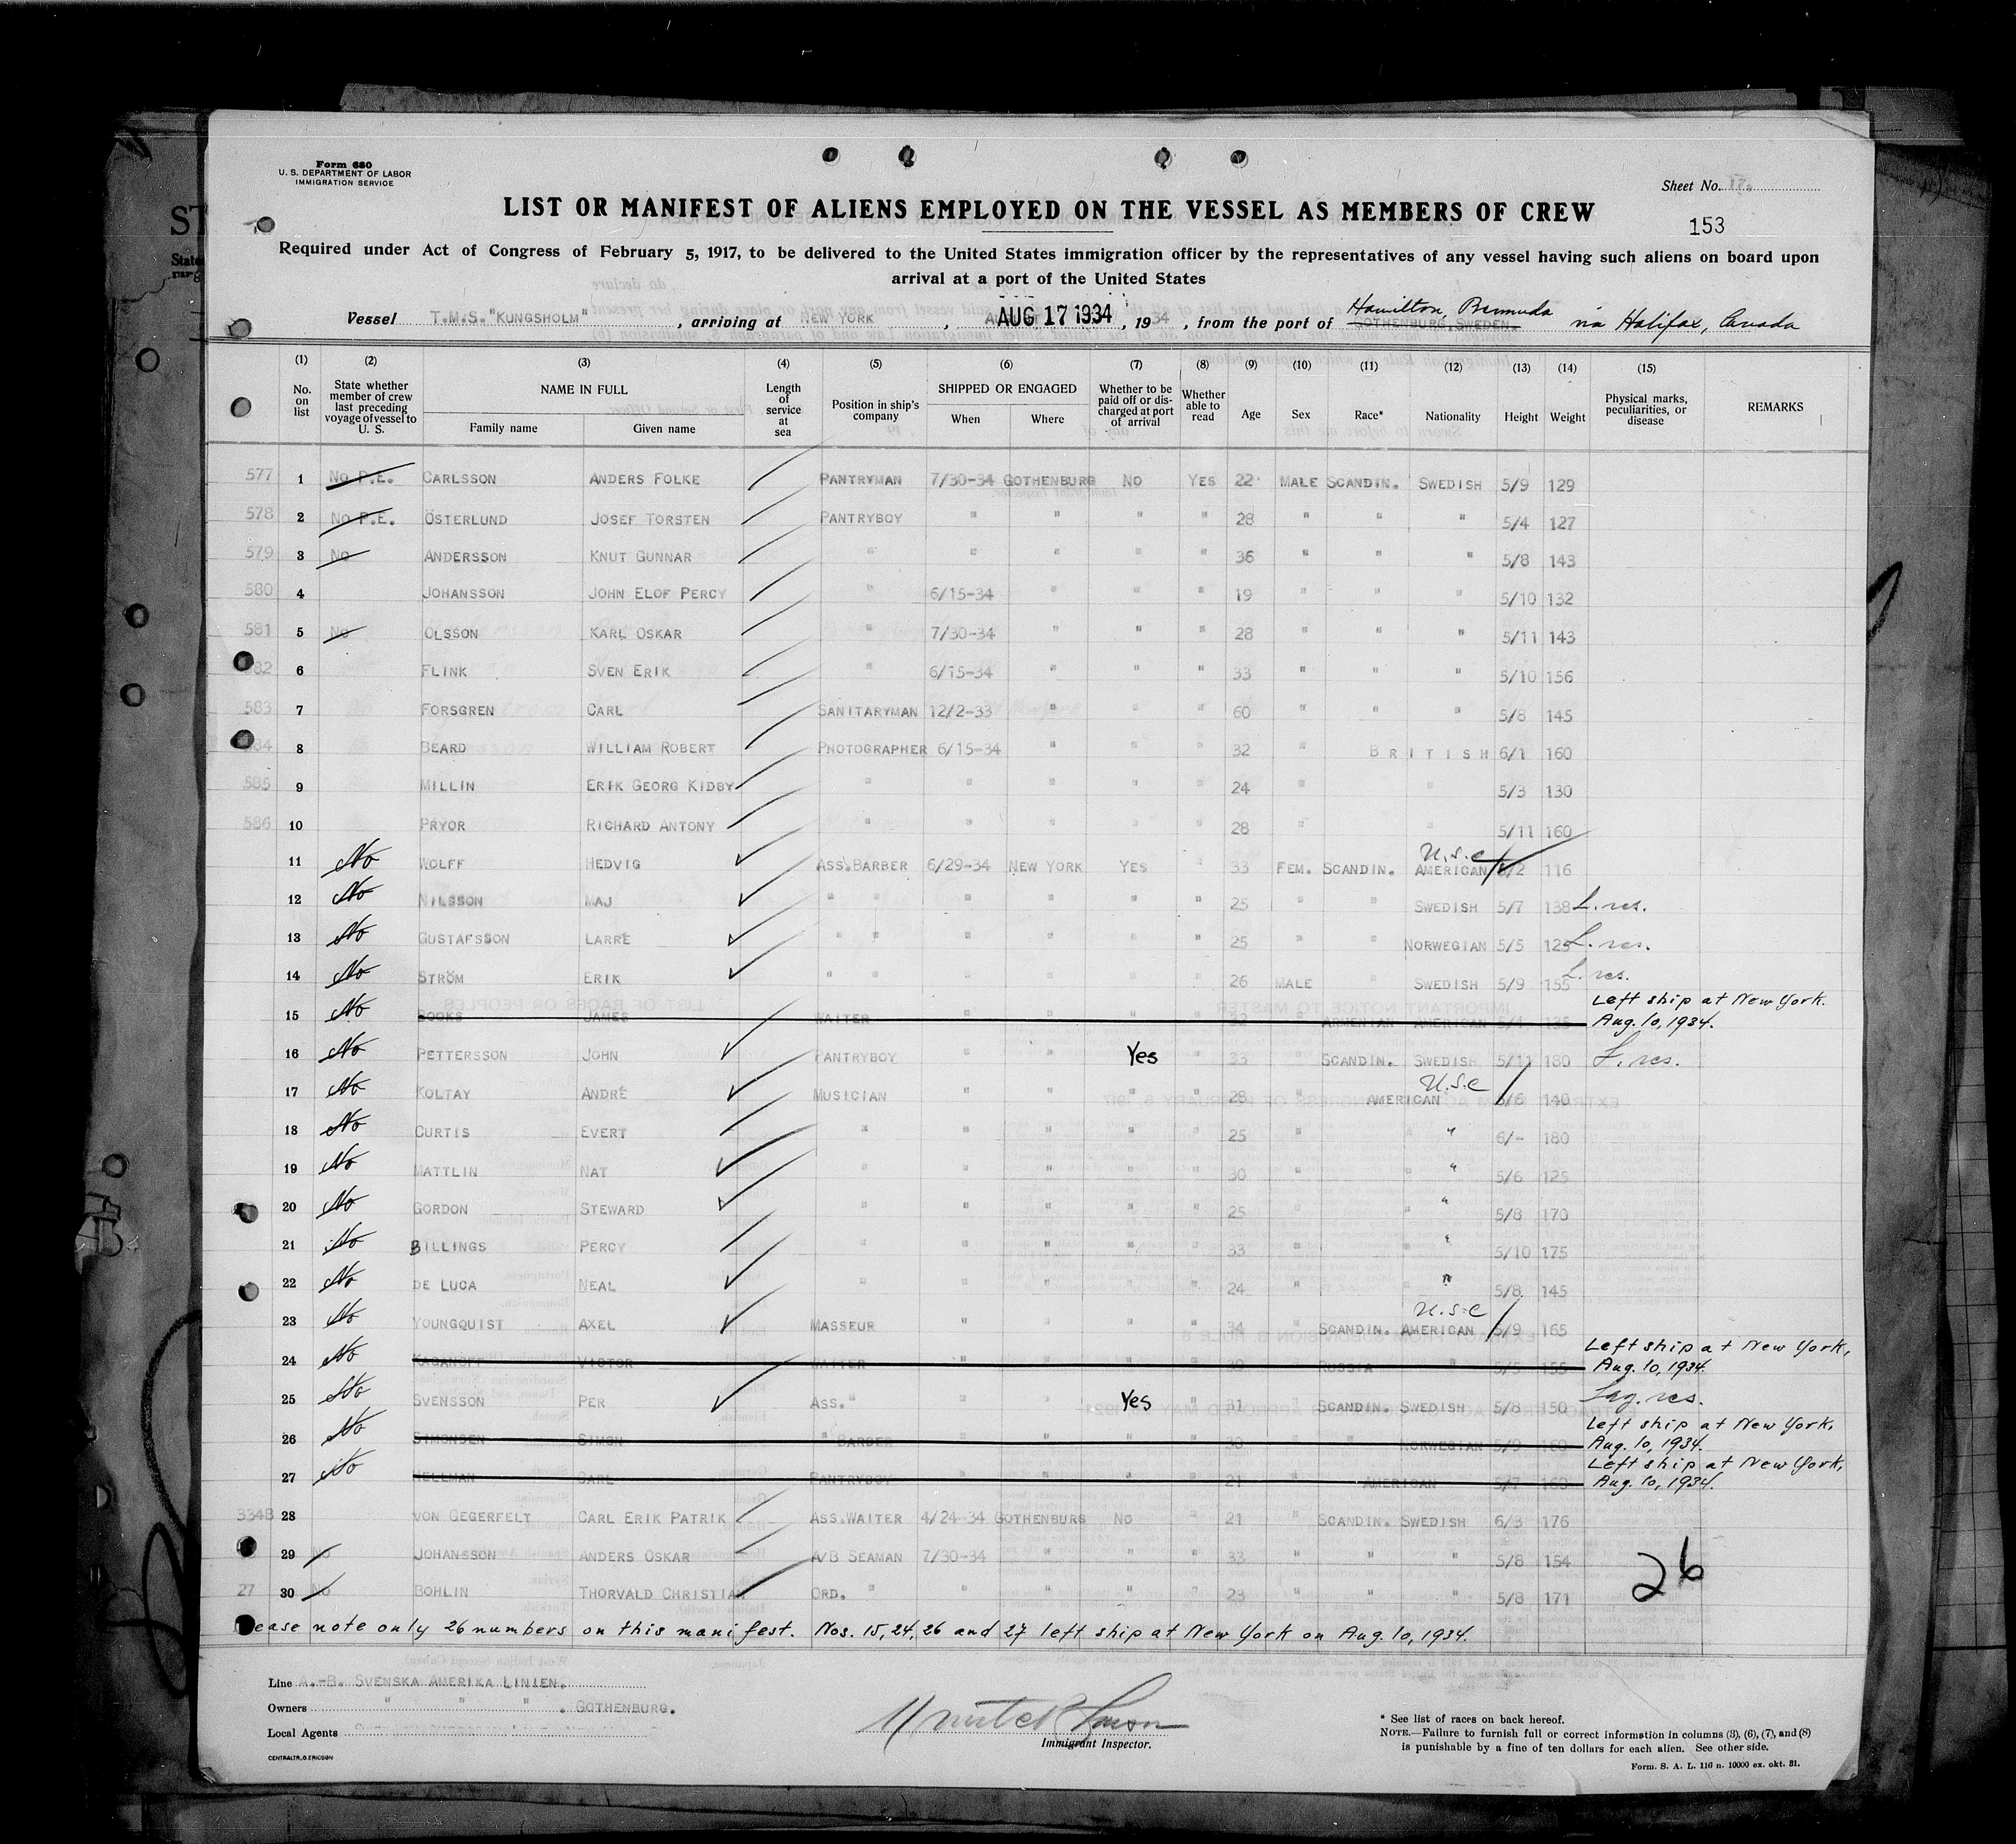 Form 680
U. S. DEPARTMENT OF LABOR
IMMIGRATION SERVICE
Sheet No. 17.
LIST OR MANIFEST OF ALIENS EMPLOYED ON THE VESSEL AS MEMBERS OF CREW
153
Required under Act of Congress of February 5, 1917, to be delivered to the United States immigration officer by the representatives of any vessel having such aliens on board upon
arrival at a port of the United States
Vessel T.M.S. "KUNGSHOLM", arriving at NEW YORK, AUG 17 1934, 1934, from the port of GOTHENBURG, SWEDEN Hamilton, Bermuda via Halifax, Canada
(1) (2) (3) (4) (5) (6) (7) (8) (9) (10) (11) (12) (13) (14) (15)
No. on list | State whether member of crew last preceding voyage of vessel to U. S. | NAME IN FULL | Family name | Given name | Length of service at sea | Position in ship's company | SHIPPED OR ENGAGED | When | Where | Whether to be paid off or discharged at port of arrival | Whether able to read | Age | Sex | Race* | Nationality | Height | Weight | Physical marks, peculiarities, or disease | REMARKS
577 1 No P.E. CARLSSON ANDERS FOLKE PANTRYMAN 7/30-34 GOTHENBURG NO YES 22 MALE SCANDIN. SWEDISH 5/9 129
578 2 No P.E. ÖSTERLUND JOSEF TORSTEN PANTRYBOY " " " " 28 " " " 5/4 127
579 3 No ANDERSSON KNUT GUNNAR " " " " " 36 " " " 5/8 143
580 4 JOHANSSON JOHN ELOF PERCY " 6/15-34 " " " 19 " " " 5/10 132
581 5 No OLSSON KARL OSKAR " 7/30-34 " " " 28 " " " 5/11 143
82 6 FLINK SVEN ERIK " 6/15-34 " " " 33 " " " 5/10 156
583 7 FORSGREN CARL SANITARYMAN 12/2-33 " " " 60 " " " 5/8 145
84 8 BEARD WILLIAM ROBERT PHOTOGRAPHER 6/15-34 " " " 32 " BRITISH 6/1 160
585 9 MILLIN ERIK GEORG KIDBY " " " " " 24 " " 5/3 130
586 10 PRYOR RICHARD ANTONY " " " " " 28 " " 5/11 160
11 No WOLFF HEDVIG ASS. BARBER 6/29-34 NEW YORK YES " 33 FEM. SCANDIN. AMERICAN U.S.C 5/2 116
12 No NILSSON MAJ " " " " " " 25 " " SWEDISH 5/7 138 L. res.
13 No GUSTAFSSON LARRE " " " " " " 25 " " NORWEGIAN 5/5 125 L. res.
14 No STRÖM ERIK " " " " " " 26 MALE " SWEDISH 5/9 155 L. res.
15 No JAMES WAITER " " " " 32 " ARMENIAN AMERICAN 5/4 135 Left ship at New York.
Aug. 10, 1934.
16 No PETTERSSON JOHN PANTRYBOY " " Yes " 33 SCANDIN. SWEDISH 5/11 180 L. res.
17 No KOLTAY ANDRÉ MUSICIAN " " " " 28 " AMERICAN U.S.C 5/6 140
18 No CURTIS EVERT " " " " " 25 " " " 6/- 180
19 No MATTLIN NAT " " " " " 30 " " " 5/6 125
20 No GORDON STEWARD " " " " " 25 " " " 5/8 170
21 No BILLINGS PERCY " " " " " 33 " " " 5/10 175
22 No DE LUCA NEAL " " " " " 24 " " " 5/8 145
23 No YOUNGQUIST AXEL MASSEUR " " " " 34 " SCANDIN. AMERICAN U.S.C 5/9 165
24 No KAGANOFF VICTOR WAITER " " " " 30 " RUSSIA " 5/5 155 Left ship at New York,
Aug. 10, 1934.
25 No SVENSSON PER ASS. " " " Yes " 31 " SCANDIN. SWEDISH 5/8 150 Leg. res.
26 No SIMONSEN SIMON " BARBER " " " " 30 " " NORWEGIAN 5/9 160 Left ship at New York,
Aug. 10, 1934.
27 No HELLMAN CARL PANTRYBOY " " " " 21 " AMERICAN 5/7 160 Left ship at New York,
Aug. 10, 1934.
334B 28 VON GEGERFELT CARL ERIK PATRIK ASS. WAITER 4/24-34 GOTHENBURG NO " 21 " SCANDIN. SWEDISH 6/3 176
29 No JOHANSSON ANDERS OSKAR A/B SEAMAN 7/30-34 " " " 33 " " " 5/8 154
27 30 No BOHLIN THORVALD CHRISTIAN ORD. " " " " " 23 " " " 5/8 171
26
ease note only 26 numbers on this manifest. Nos. 15, 24, 26 and 27 left ship at New York on Aug. 10, 1934.
Line A.-B. SVENSKA AMERIKA LINIEN.
Owners " " " . GOTHENBURG.
Local Agents
Immigrant Inspector.
CENTRALTR. G. ERICSON
* See list of races on back hereof.
NOTE.—Failure to furnish full or correct information in columns (3), (6), (7), and (8)
is punishable by a fine of ten dollars for each alien. See other side.
Form. S. A. L. 116 n. 10000 ex. okt. 31.